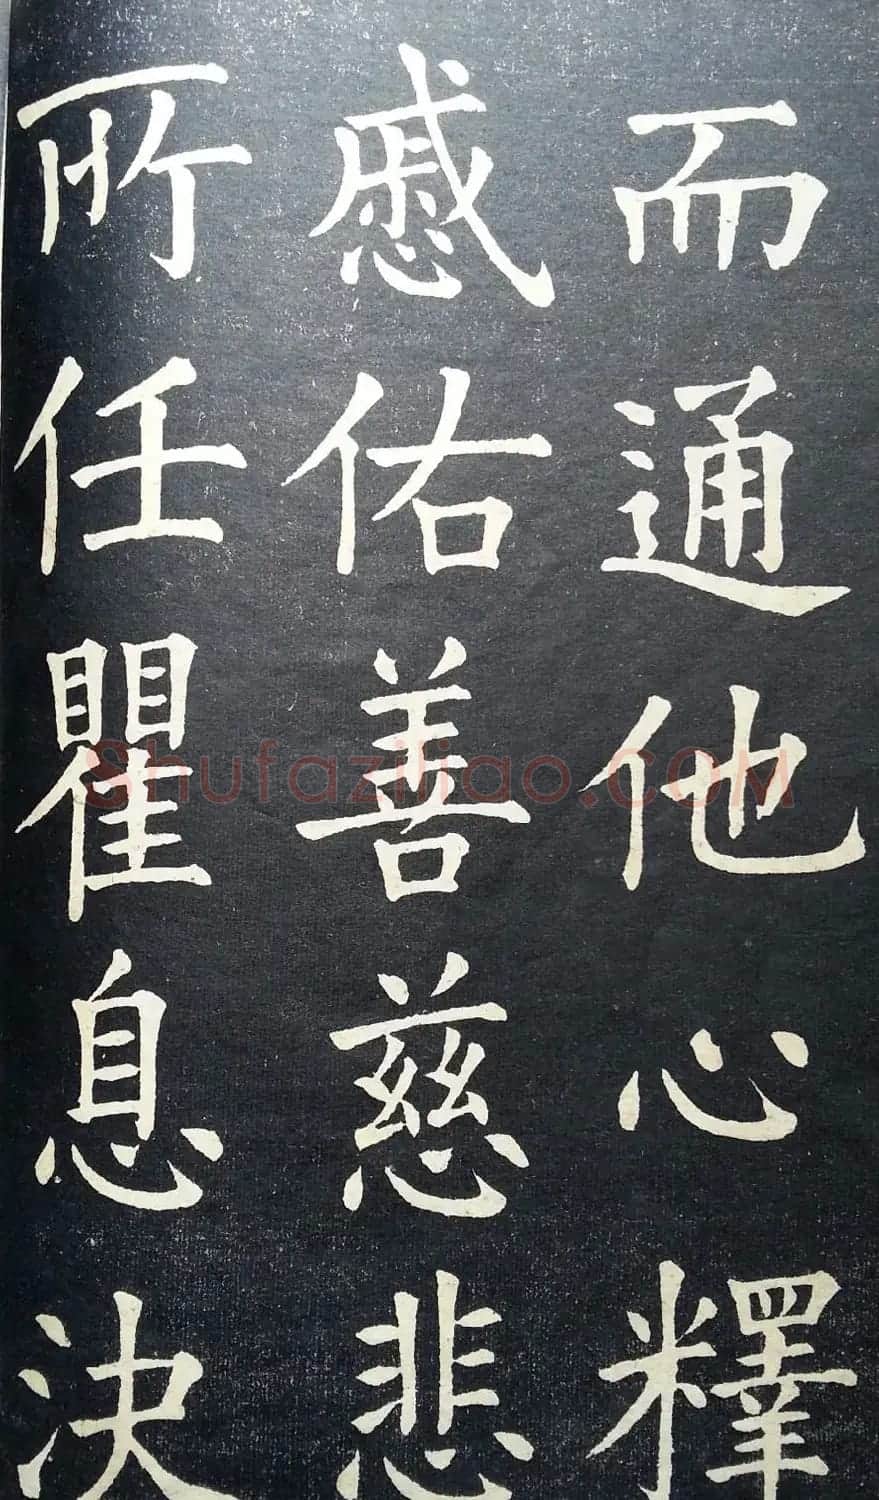 而通他心釋
慼佑善慈悲
所任瞿息決
Shufaziliao.COM